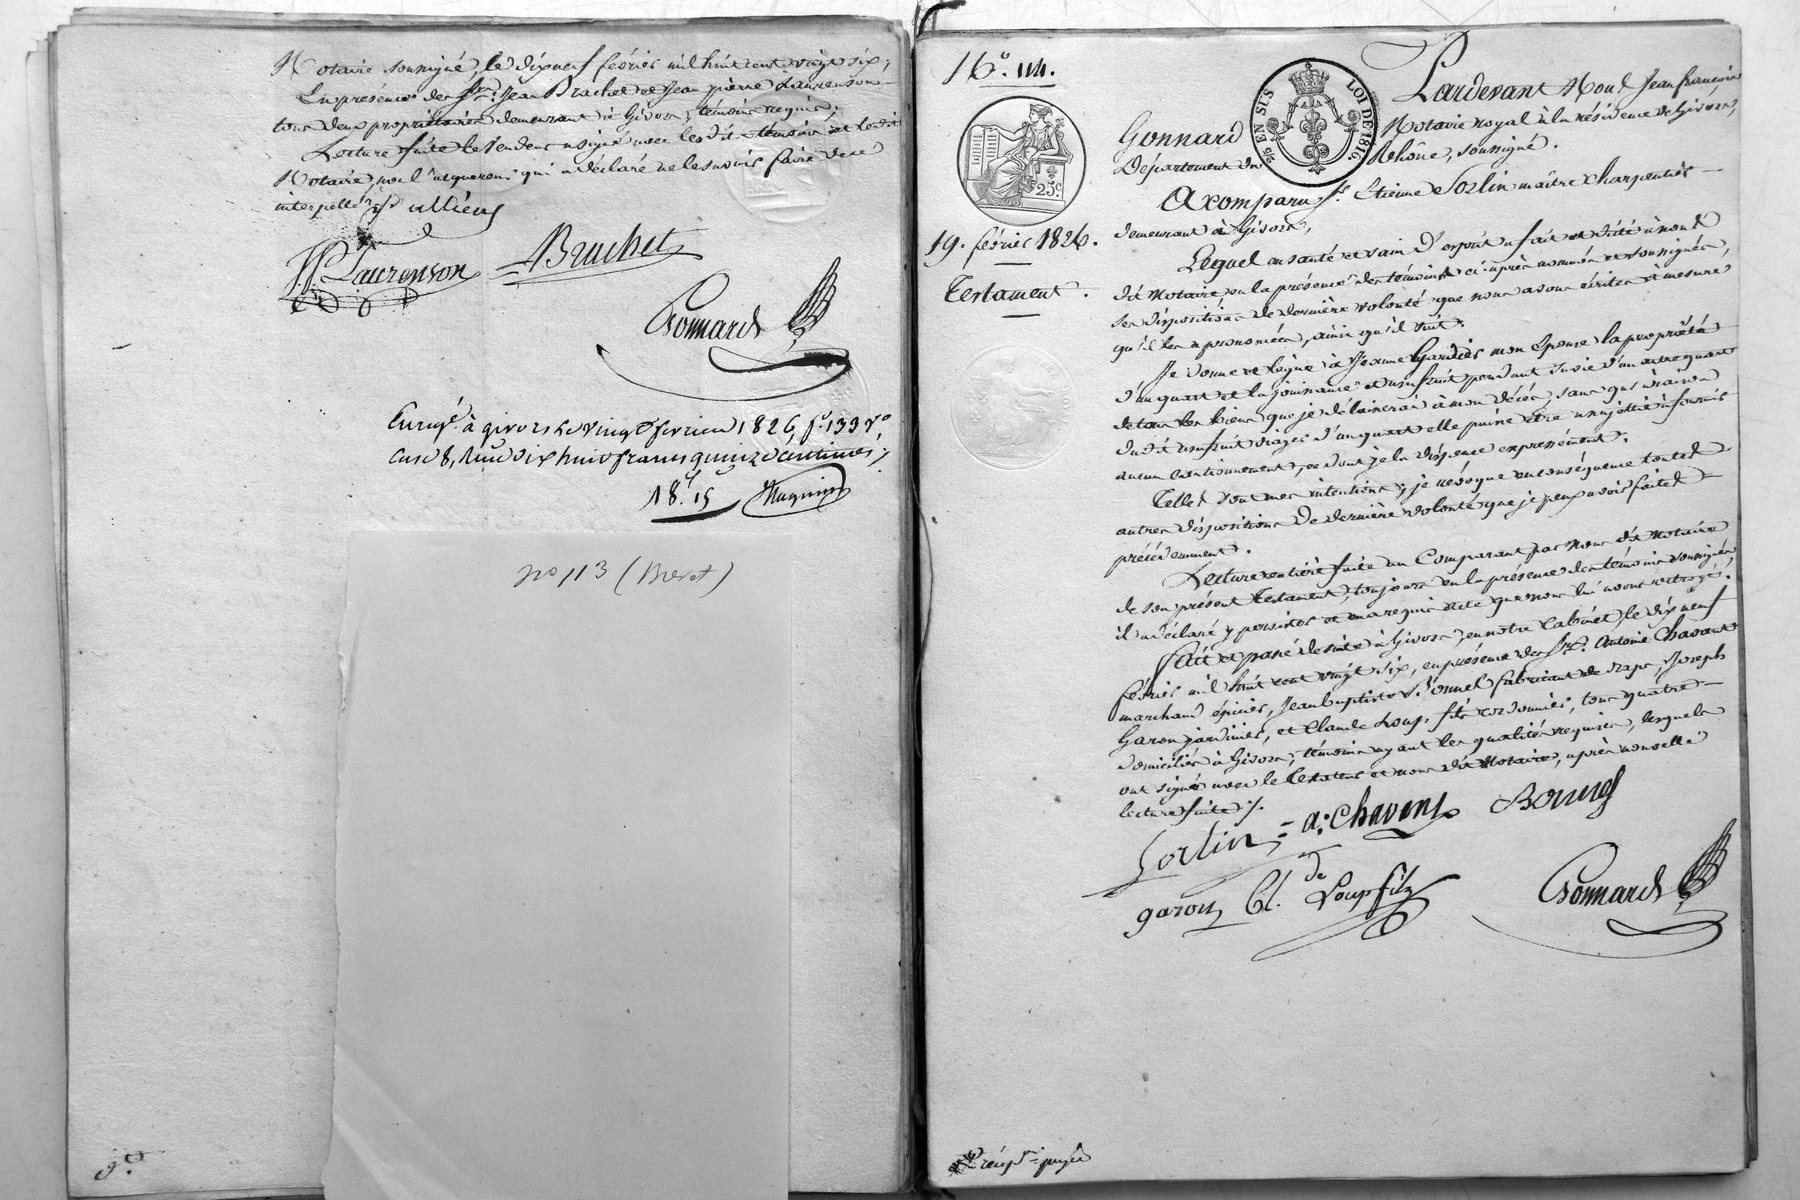 Notaire soussigné, le dixneuf février mil huit cent vingt six,
En présence des Srs. Jean Brachet et Jean pierre Laurenson
tous deux propriétaires demeurant à Givors, témoins requis.
Lecture faite le vendeur a signé avec les dits témoins et le dit
Notaire, non l'acquereur qui a déclaré ne le savoir faire de ce
interpellé
J.P. Laurenson
Brachet
Gonnard
Enregé. à givors le vingt fevrier 1826, fo. 139 vo
case 8, Reçu dix huit francs quinze centimes
18f. 15
no 113 (Brevet)
16o.
114.
25c
19. février 1826.
Testament.
EN SUS
LOI DE 1816
Pardevant Me Jean françois
Gonnard Notaire royal à la résidence de Givors,
Département du Rhône, soussigné.
A comparu Sr. Etienne Sorlin maître charpentier
demeurant à Givors,
Lequel en santé et sain d'esprit a fait et dicté à nous
dit Notaire en la présence des témoins ci-après nommés et soussignés,
ses dispositions de dernière volonté que nous avons écrites à mesure
qu'il les a prononcées, ainsi qu'il suit.
Je donne et lègue à Jeanne Gardier mon épouse la propriété
d'un quart et la jouissance et usufruit pendant sa vie d'un autre quart
de tous les biens que je délaisserai à mon décès, sans qu'à raison
du dit usufruit viager d'un quart elle puisse être assujettie à fournir
aucun cautionnement, ce dont je la dispense expressément.
Telles sont mes intentions; je révoque en conséquence toutes
autres dispositions de dernière volonté que je peux avoir faites
précédemment.
Lecture entière faite au Comparant par Nous dit Notaire
de son présent Testament, toujours en la présence des témoins soussignés,
il a déclaré y persister et en a requis acte que nous lui avons octroyé.
Fait et passé de suite à Givors, en notre Cabinet, le dix neuf
février mil huit cent vingt six, en présence des Srs. Antoine Chavant
marchand épicier, Jean baptiste fabricant de draps, Joseph
Garon jardinier, et Claude Loup, fils cordonnier, tous quatre
domiciliés à Givors, témoins ayant les qualités requises, lesquels
ont signé avec le Testateur et nous dit Notaire, après nouvelle
lecture faite
Sorlin
a. Chavent
garon
Cl. Loup fils
Gonnard